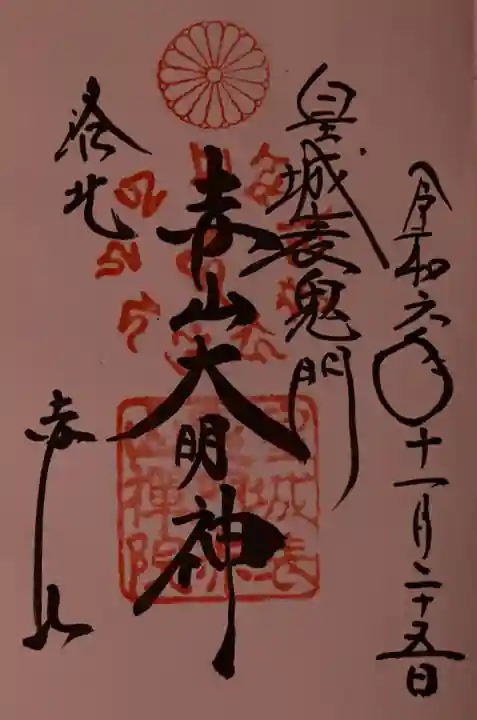 令和六年十一月二十五日
皇城表鬼門
赤山大明神
洛北
赤山